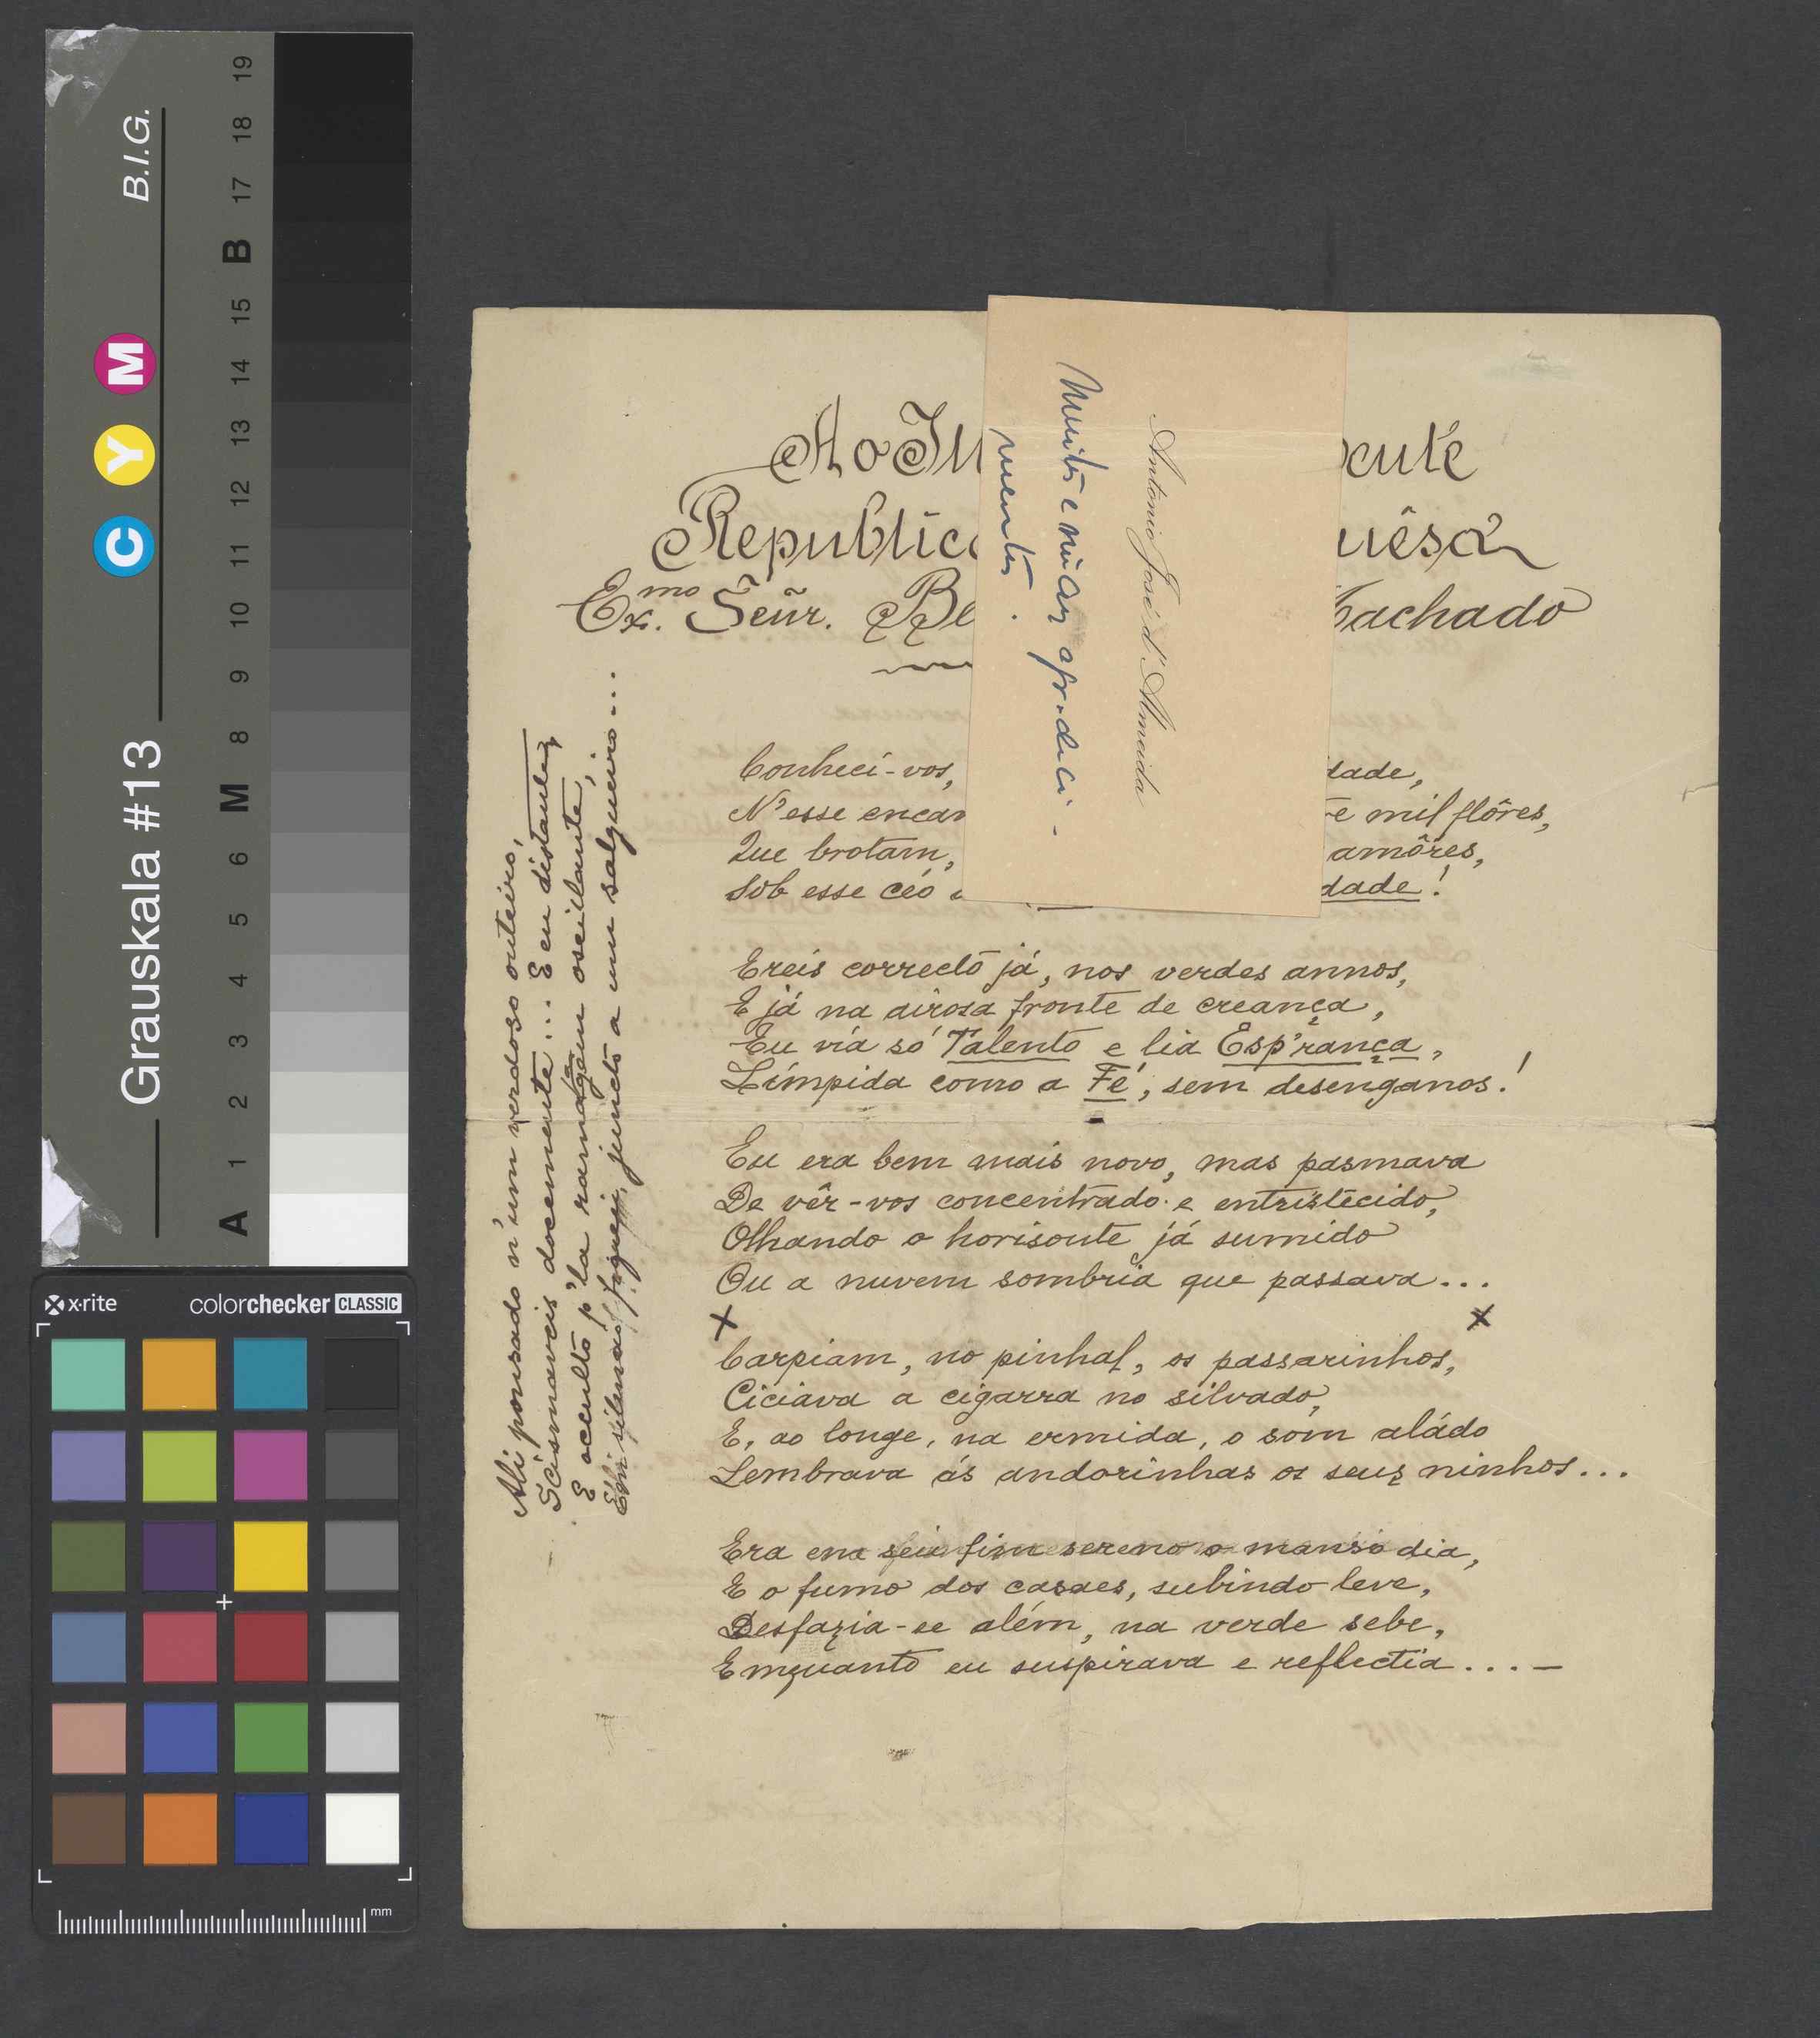 Grauskala #13
B.I.G.
C Y M
A 1 2 3 4 5 6 M 8 9 10 11 12 13 14 15 B 17 18 19
x-rite
colorchecker CLASSIC
mm
Ao Il
ente
Republica
uêsa
Ex.mo Señr. Be
Machado
Antonio José d'Almeida
Muito e
mento.
Conheci-vos,
dade,
N'esse encan
e mil flôres,
Que brotam,
amôres,
Sob esse ceó
dade!
Ereis correcto já, nos verdes annos,
E já na airosa fronte de creança,
Eu via só Talento e lia Esp'rança,
Limpida como a Fé, sem desenganos!
Eu era bem mais novo, mas pasmava
De vêr-vos concentrado e entristecido,
Olhando o horisonte já sumido
Ou a nuvem sombria que passava...
x x
Carpiam, no pinhal, os passarinhos,
Ciciava a cigarra no silvado,
E, ao longe, na ermida, o som aládo
Lembrava ás andorinhas os seus ninhos...
Era em seu fim sereno o manso dia,
E o fumo dos casaes, subindo leve,
Desfazia-se além, na verde sebe,
Emquanto eu suspirava e reflectia... —
Ali pousado n'um verdoso outeiro,
Scismaveis docemente... E eu distante,
E occulto p'la ramagem oscillante,
fiquei, juncto a um salgueiro...